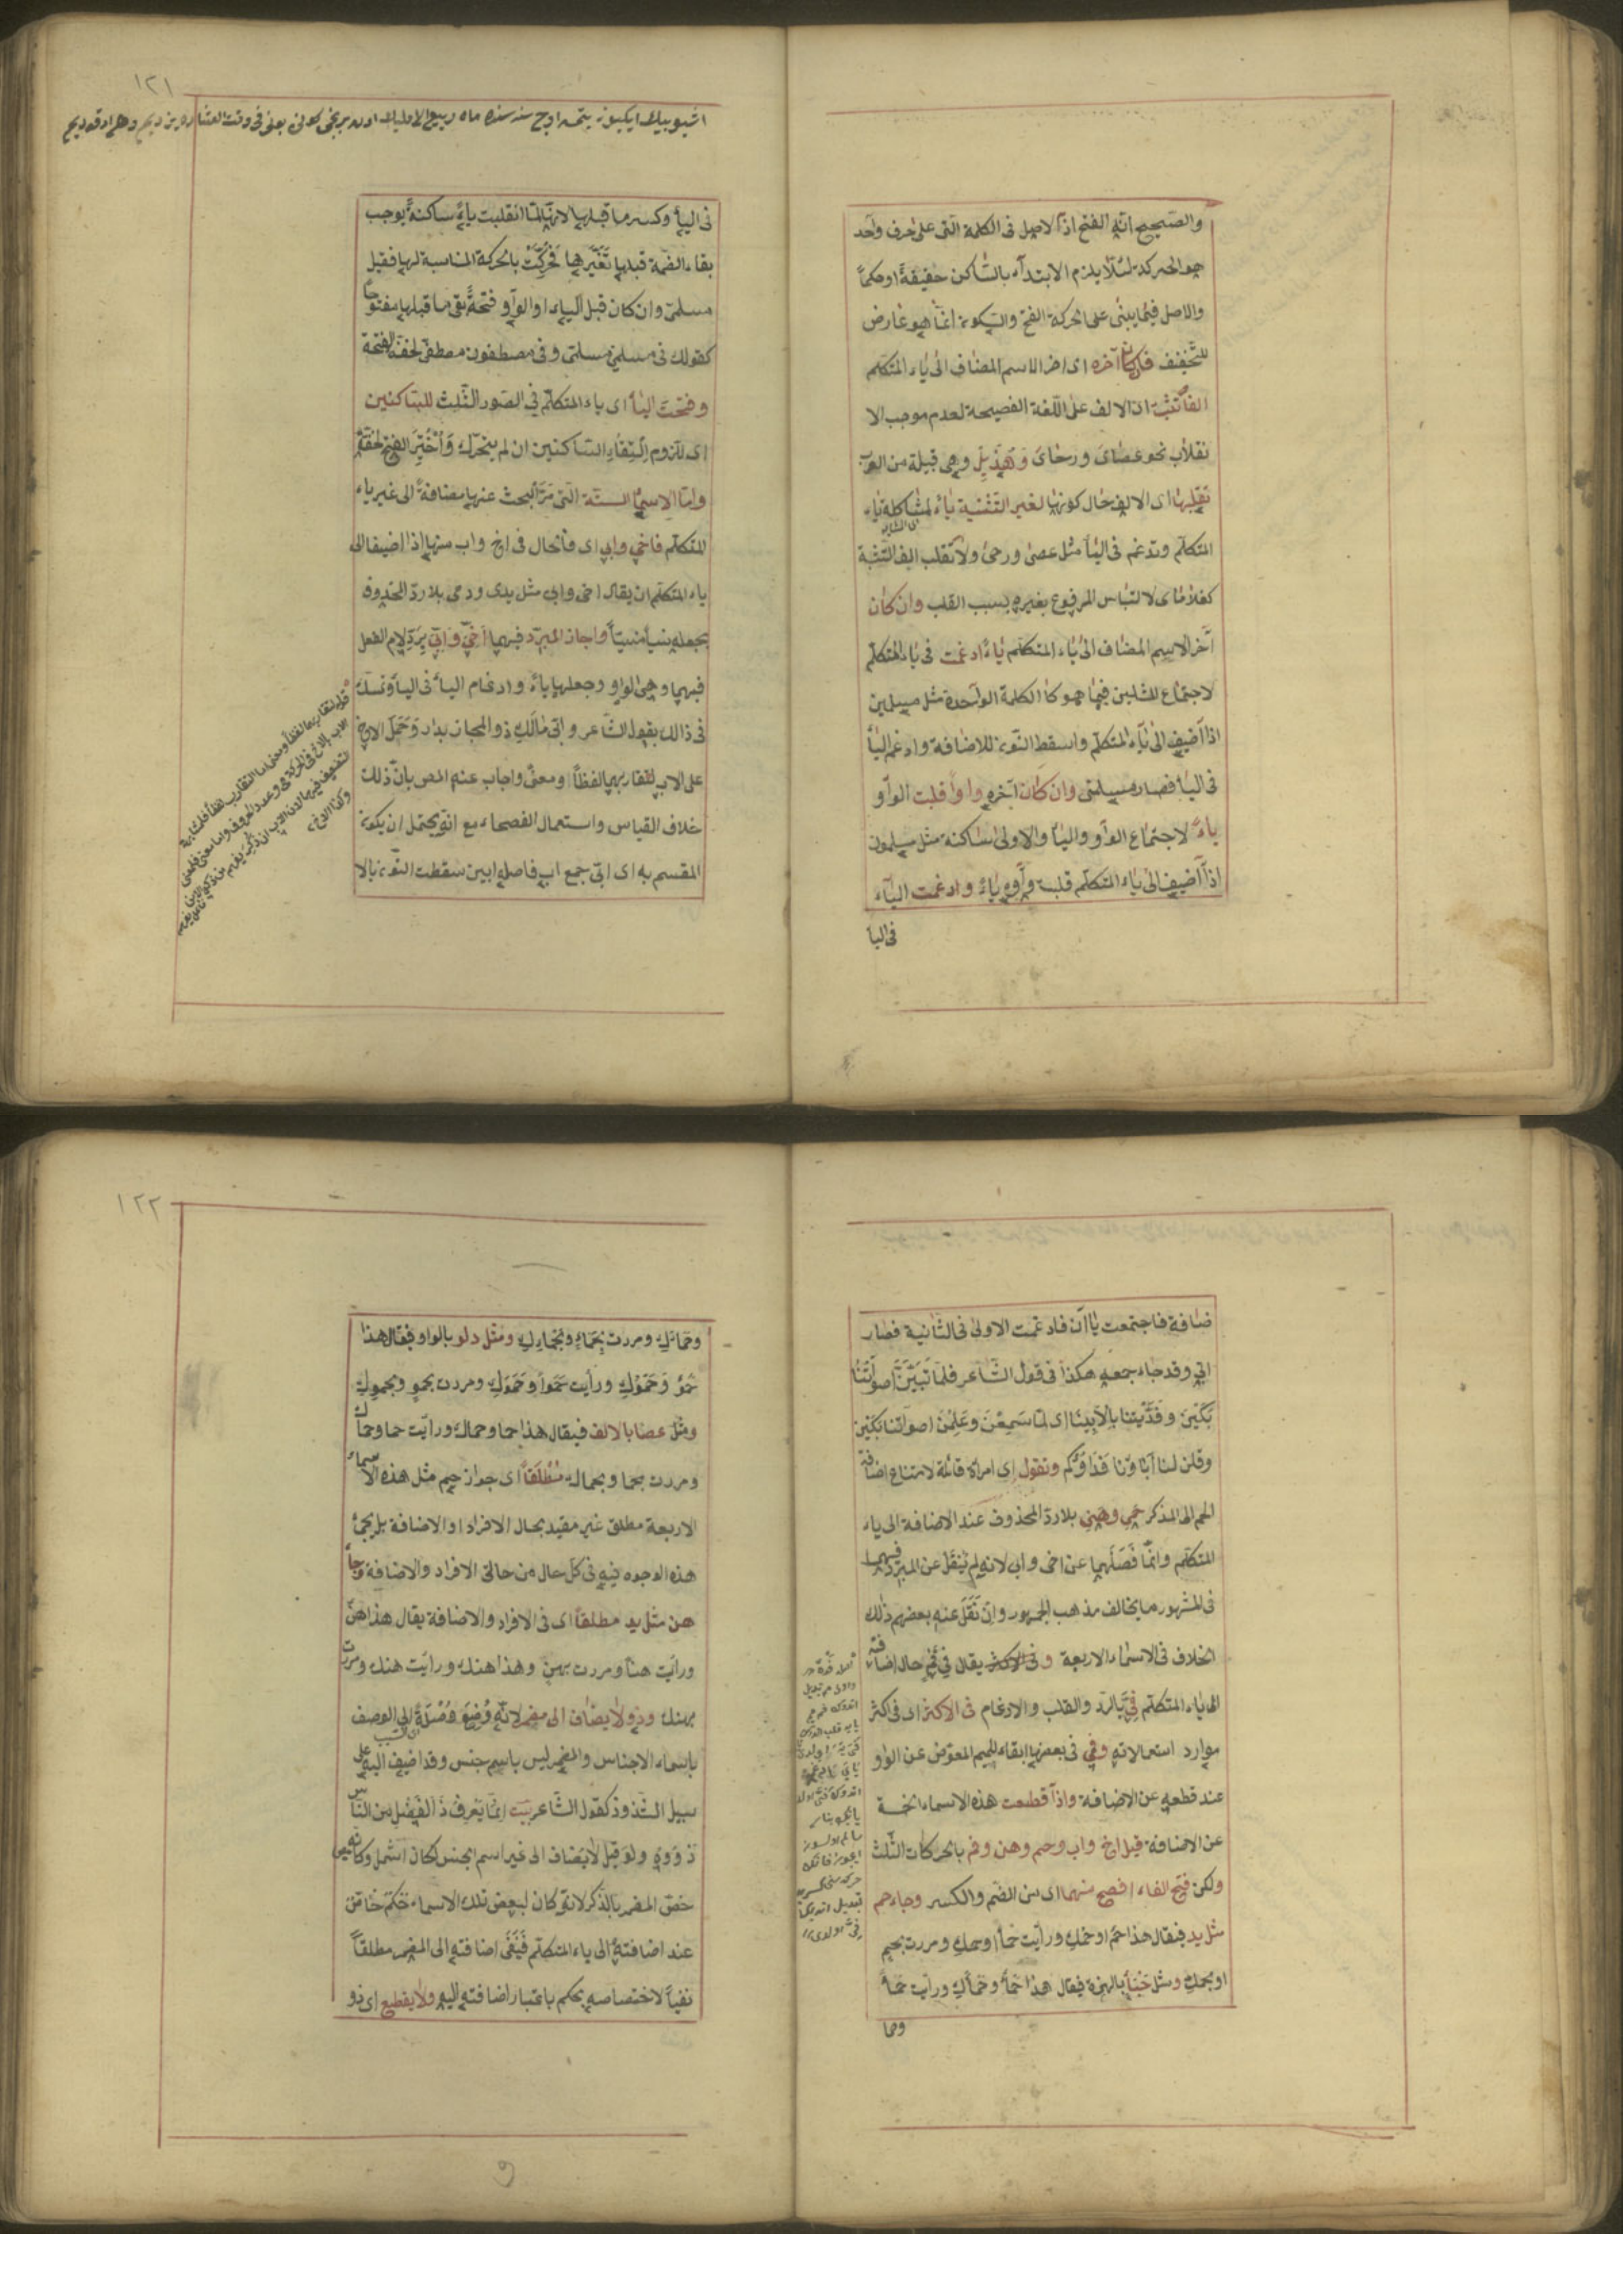 والصحيح انه الفتح اذ الاصل فى الكلمة التى على حرف واحد
هو الحركة لئلا يلزم الابتداء بالساكن حقيقة او حكما
والاصل فيما يبنى على الحركة الفتح والسكون انما هو عارض
للتخفيف فان كان آخره اى اخر الاسم المضاف الى ياء المتكلم
الفا تثبت اى الالف على اللغة الفصيحة لعدم موجب الا
نقلاب نحو عصاى ورحاى وهذيل وهى قبيلة من العرب
تقلبها اى الالف حال كونها لغير التثنية ياء لمشاكلة ياء
المتكلم وتدغم فى الياء مثل عصى ورحى ولا تقلب الف التثنية
كغلاماى لالتباس المرفوع بغيره بسبب القلب وان كان
آخر الاسم المضاف الى ياء المتكلم ياء ادغمت فى ياء المتكلم
لاجتماع المثلين فيما هو كالكلمة الواحدة مثل مسلمين
اذا اضيف الى ياء المتكلم واسقط النون للاضافة وادغم الياء
فى الياء فصار مسلمى وان كان آخره واوا قلبت الواو
ياء لاجتماع الواو والياء والاولى ساكنة مثل مسلمون
اذا اضيف الى ياء المتكلم قلبت واوه ياء وادغمت الياء
فى اليا
١٢١
فى الياء وكسر ما قبلها لانها لما انقلبت ياء ساكنة يوجب
بقاء الضمة قبلها تغيرها فحركت بالحركة المناسبة لها فقيل
مسلمى وان كان قبل الياء او الواو فتحة بقى ما قبلها مفتوحا
كقولك فى مسلمين مسلمى وفى مصطفون مصطفى لخفة الفتحة
وفتحت الياء اى ياء المتكلم فى الصور الثلث للساكنين
اى للزوم التقاء الساكنين ان لم يتحرك واختير الفتح لخفته
واما الاسماء الستة التى مر البحث عنها مضافة الى غير ياء
المتكلم فاخى وابى اى فالحال فى اخ واب منها اذا اضيفا الى
ياء المتكلم ان يقال اخى وابى مثل يدى ودمى بلا رد المحذوف
بجعله نسيا منسيا واجاز المبرد فيهما اخى وابى برد لام الفعل
فيهما وهى الواو وجعلها ياء وادغام الياء فى الياء وتمسك
فى ذلك بقول الشاعر وابى مالك ذو المجاز بدار وحمل الاخ
على الاب لتقاربهما لفظا ومعنى واجاب عنه المص بان ذلك
خلاف القياس واستعمال الفصحاء مع انه يحتمل ان يكون
المقسم به اى ابى جمع اب فاصله ابين سقطت النون بالا
ضافة فاجتمعت ياآن فادغمت الاولى فى الثانية فصار
ابى وقد جاء جمعه هكذا فى قول الشاعر فلما تبين اصواتنا
بكين وفديننا بالابينا اى لما سمعن وعلمن اصواتنا بكين
وقلن لنا آباؤنا فداؤكم وتقول اى امراة قائلة لامتناع اضافة
الحم الى المذكر حمى وهنى بلا رد المحذوف عند الاضافة الى ياء
المتكلم وانما فصلهما عن اخى وابى لانه لم ينقل عن المبرد فيهما
فى المشهور ما يخالف مذهب الجمهور وان نقل عنه بعضهم ذلك
الخلاف فى الاسماء الاربعة وفى الاكثر يقال فى فم حال اضافته
الى ياء المتكلم فى بالرد والقلب والادغام فى الاكثر اى فى اكثر
موارد استعمالاته وفمى فى بعضها ابقاء للميم المعوض عن الواو
عند قطعه عن الاضافة واذا قطعت هذه الاسماء الخمسة
عن الاضافة قيل اخ واب وحم وهن وفم بالحركات الثلث
ولكن فتح الفاء افصح منهما اى من الضم والكسر وجاء حم
مثل يد فيقال هذا حم او حمك ورأيت حما او حمك ومررت بحم
او بحمك ومثل خبأ بالهمزة فيقال هذا حمأ وحمأك ورأيت حمأ
وحما
١٢٢
وحمائك ومررت بحماء وبحمائك ومثل دلو بالواو فيقال هذا
حمو وحموك ورأيت حموا وحموك ومررت بحمو وبحموك
ومثل عصا بالالف فيقال هذا حما وحماك ورأيت حما وحماك
ومررت بحما وبحماك مطلقا اى جواز حم مثل هذه الاسماء
الاربعة مطلق غير مقيد بحال الافراد او الاضافة بل يجئ
هذه الوجوه فيه فى كل حال من حالتى الافراد والاضافة وجاء
هن مثل يد مطلقا اى فى الافراد والاضافة يقال هذا هن
ورأيت هنا ومررت بهن وهذا هنك ورأيت هنك ومررت
بهنك وذو لا يضاف الى مضمر لانه وضع وصلة الى الوصف
باسماء الاجناس والمضمر ليس باسم جنس وقد اضيف اليه على
سبيل الشذوذ كقول الشاعر بيت انما يعرف ذا الفضل من الناس
ذووه ولو قيل لا يضاف الى غير اسم الجنس لكان اشمل وكانه
خص المضمر بالذكر لانه كان لبعض تلك الاسماء حكم خاص
عند اضافته الى ياء المتكلم فنفى اضافته الى المضمر مطلقا
نفيا لاختصاصه بحكم باعتبار اضافته اليه ولا يقطع اى ذو